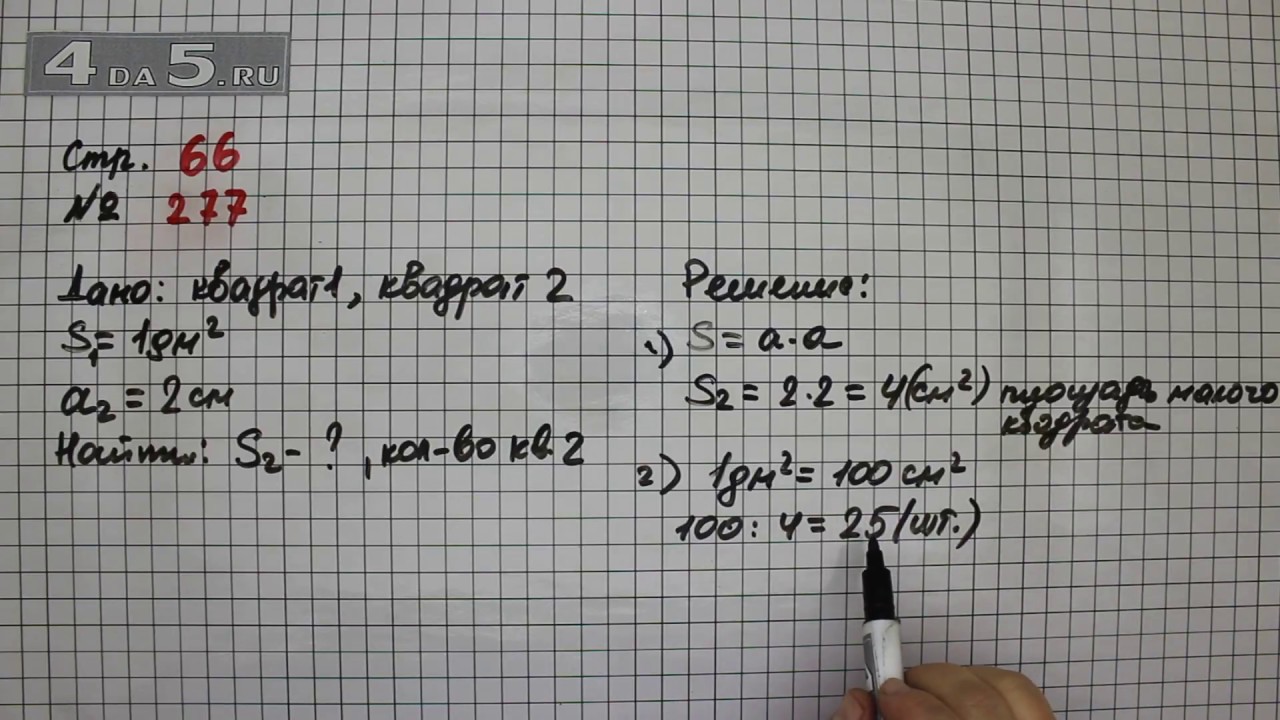 4DA5.RU
Стр. 66
№ 277
Дано: квадрат 1, квадрат 2
S₁ = 1 дм²
a₂ = 2 см
Найти: S₂ - ?, кол-во кв. 2
Решение:
1) S = a · a
S₂ = 2 · 2 = 4 (см²) площадь малого
квадрата
2) 1 дм² = 100 см²
100 : 4 = 25 (шт.)